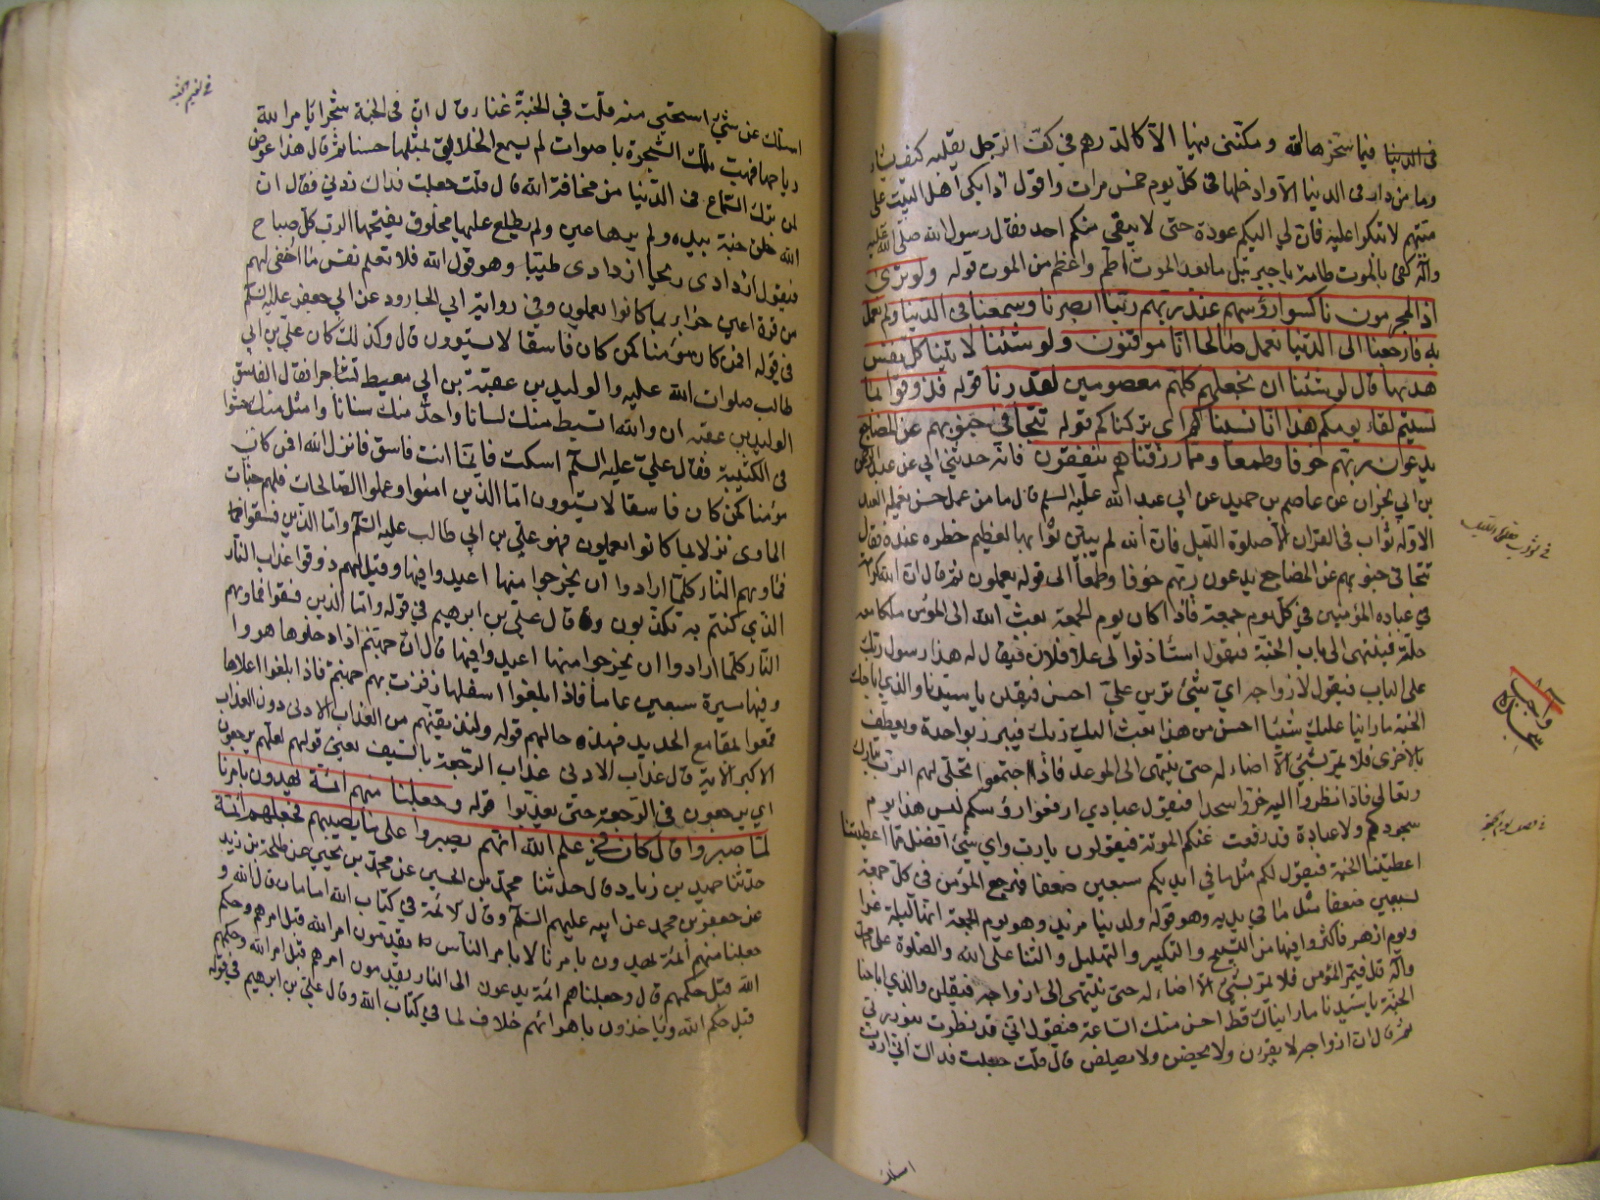 فى الدنيا فيما سخرها لله ومكننى منها الا كالدرهم فى كف الرجل يقلبه كيف يشاء
وما من دار فى الدنيا الا وادخلها فى كل يوم خمس مرات واقول اذا بكى اهل البيت على
ميتهم لا تبكوا عليه فان لى اليكم عودة وعودة حتى لا يبقى منكم احد فقال رسول الله صلى الله عليه
وآله كفى بالموت طامة يا جبرئيل ما بعد الموت اطم واعظم من الموت قوله ولو ترى
اذ المجرمون ناكسوا رؤسهم عند ربهم ربنا ابصرنا وسمعنا فى الدنيا ولم نعمل
به فارجعنا الى الدنيا نعمل صالحا انا موقنون ولو شئنا لاتينا كل نفس
هديها قال لو شئنا ان نجعلهم كلهم معصومين لقدرنا قوله فذوقوا بما
نسيتم لقاء يومكم هذا انا نسيناكم اى تركناكم قوله تتجافى جنوبهم عن المضاجع
يدعون ربهم خوفا وطمعا ومما رزقناهم ينفقون فانه حدثنى ابى عن عبد الرحمن
بن ابى نجران عن عاصم بن حميد عن ابى عبد الله عليه السلم قال ما من عمل حسن يعمله العبد
الا وله ثواب فى القران الا صلوة الليل فان الله لم يبين ثوابها لعظيم خطره عنده فقال
تتجافى جنوبهم عن المضاجع يدعون ربهم خوفا وطمعا الى قوله يعملون ثم قال ان لله كرامة
فى عباده المؤمنين فى كل يوم جمعة فاذا كان يوم الجمعة بعث الله الى المؤمن ملكا معه
حلة فينتهى الى باب الجنة فيقول استأذنوا لى على فلان فيقال له هذا رسول ربك
على الباب فيقول لازواجه اى شئ ترين على احسن فيقلن يا سيدنا والذى اباحك
الجنة ما راينا عليك شيئا احسن من هذا بعث اليك ربك فيتزر بواحدة ويتعطف
بالاخرى فلا يمر بشئ الا اضاء له حتى ينتهى الى الموعد فاذا اجتمعوا تجلى لهم الرب تبارك
وتعالى فاذا نظروا اليه خروا سجدا فيقول عبادى ارفعوا رؤسكم ليس هذا يوم
سجود ولا عبادة قد رفعت عنكم المؤنة فيقولون يا رب واى شئ افضل مما اعطيتنا
اعطيتنا الجنة فيقول لكم مثل ما فى ايديكم سبعين ضعفا فيرجع المؤمن فى كل جمعة
بسبعين ضعفا مثل ما فى يديه وهو قوله ولدينا مزيد وهو يوم الجمعة انها ليلة غرا
ويوم ازهر فاكثروا فيها من التسبيح والتكبير والتهليل والثنا على الله والصلوة على محمد
وآله قال فيمر المؤمن فلا يمر بشئ الا اضاء له حتى ينتهى الى ازواجه فيقلن والذى اباحنا
الجنة يا سيدنا ما رايناك قط احسن منك الساعة فيقول انى قد نظرت بنور ربى
ثم قال ان ازواجه لا يغرن ولا يحضن ولا يصلفن قال قلت جعلت فداك انى اردت
فى ثواب صلوة الليل
سجدة واجب
فى وصف يوم الجمعة
اسئلك
فى نعيم الجنة
اسئلك عن شئ استحيى منه قلت فى الجنة غنا قال ان فى الجنة شجرا يامر الله
رياحها فتهب فتلك الشجرة باصوات لم يسمع الخلايق بمثلها حسنا ثم قال هذا عوض
لمن ترك السماع فى الدنيا من مخافة الله قال قلت جعلت فداك زدنى فقال ان
الله خلق جنة بيده ولم يرها عين ولم يطلع عليها مخلوق يفتحها الرب كل صباح
فيقول ازدادى ريحا ازدادى طيبا وهو قول الله فلا تعلم نفس ما اخفى لهم
من قرة اعين جزاء بما كانوا يعملون وفى رواية ابى الجارود عن ابى جعفر عليه السلم
فى قوله افمن كان مؤمنا كمن كان فاسقا لا يستوون قال وذلك ان على بن ابى
طالب صلوات الله عليه والوليد بن عقبة بن ابى معيط تشاجرا فقال الفاسق
الوليد بن عقبه انا والله ابسط منك لسانا واحد منك سنانا وامثل منك جثوا
فى الكتيبة فقال على عليه السلم اسكت فانما انت فاسق فانزل الله افمن كان
مؤمنا كمن كان فاسقا لا يستوون اما الذين امنوا وعملوا الصالحات فلهم جنات
الماوى نزلا بما كانوا يعملون فهو على بن ابى طالب عليه السلم واما الذين فسقوا
فماويهم النار كلما ارادوا ان يخرجوا منها اعيدوا فيها وقيل لهم ذوقوا عذاب النار
الذى كنتم به تكذبون وقال على بن ابرهيم فى قوله واما الذين فسقوا فماويهم
النار كلما ارادوا ان يخرجوا منها اعيدوا فيها قال ان جهنم اذا دخلوها هووا
فيها مسيرة سبعين عاما فاذا بلغوا اسفلها زفرت بهم جهنم فاذا بلغوا اعلاها
قمعوا بمقامع الحديد فهذه حالهم قوله ولنذيقنهم من العذاب الادنى دون العذاب
الاكبر الاية قال عذاب الادنى عذاب الرجعة بالسيف معنى قولهم لعلهم يرجعون
اى يرجعون فى الرجعة حتى يعذبوا قوله وجعلنا منهم ائمة يهدون بامرنا
لما صبروا قال كان فى علم الله انهم يصبروا على ما يصيبهم فجعلهم ائمة
حدثنا حميد بن زياد قال حدثنا محمد بن الحسين عن محمد بن يحيى عن طلحة بن زيد
عن جعفر بن محمد عن ابيه عليهم السلم وقال لائمة فى كتاب الله امامان قال الله و
جعلنا منهم ائمة يهدون بامرنا لا بامر الناس يقدمون امر الله قبل امرهم وحكم
الله قبل حكمهم قال وجعلناهم ائمة يدعون الى النار يقدمون امرهم قبل امر الله وحكمهم
قبل حكم الله وياخذون باهوائهم خلاف لما فى كتاب الله وقال على بن ابرهيم فى قوله